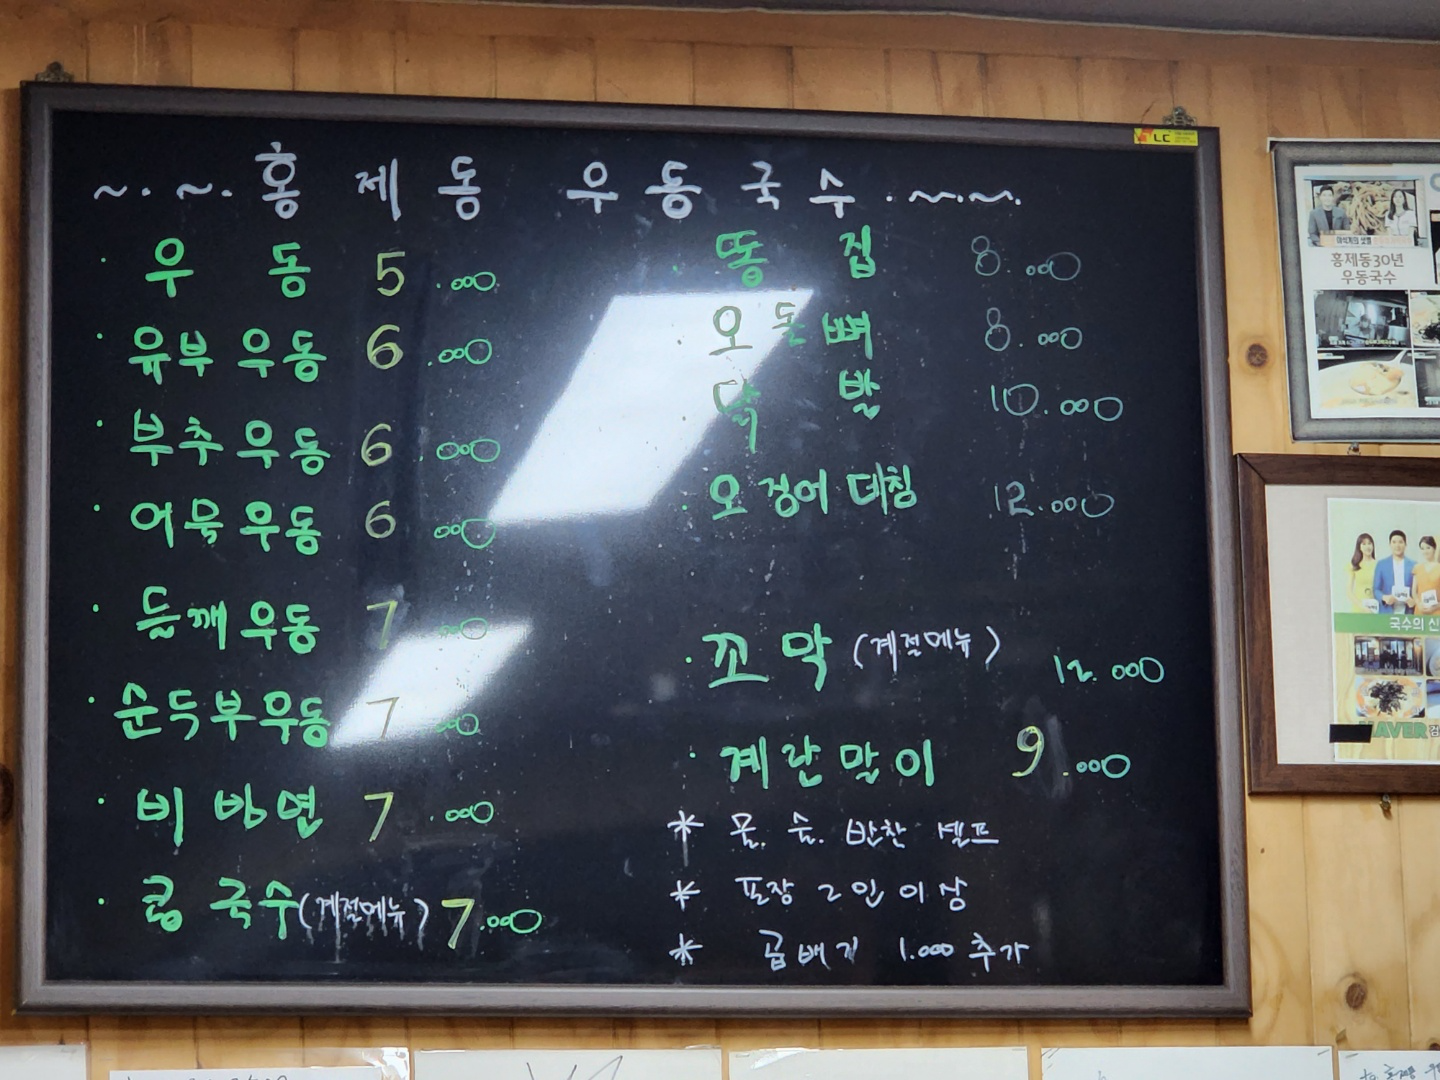 ~.~.홍제동 우동국수.~.~.
· 우동 5.000
· 유부우동 6.000
· 부추우동 6.000
· 어묵우동 6.000
· 들깨우동 7.000
· 순두부우동 7.000
· 비빔면 7.000
· 콩국수(계절메뉴) 7.000
· 똥집 8.000
오돌뼈 8.000
· 닭발 10.000
· 오징어 데침 12.000
· 꼬막 (계절메뉴) 12.000
· 계란말이 9.000
* 물. 술. 반찬 셀프
* 포장 2인 이상
* 곱배기 1.000 추가
홍제동30년
우동국수
국수의 신